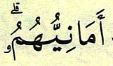 أَمَانِيُّهُمْ ۗ